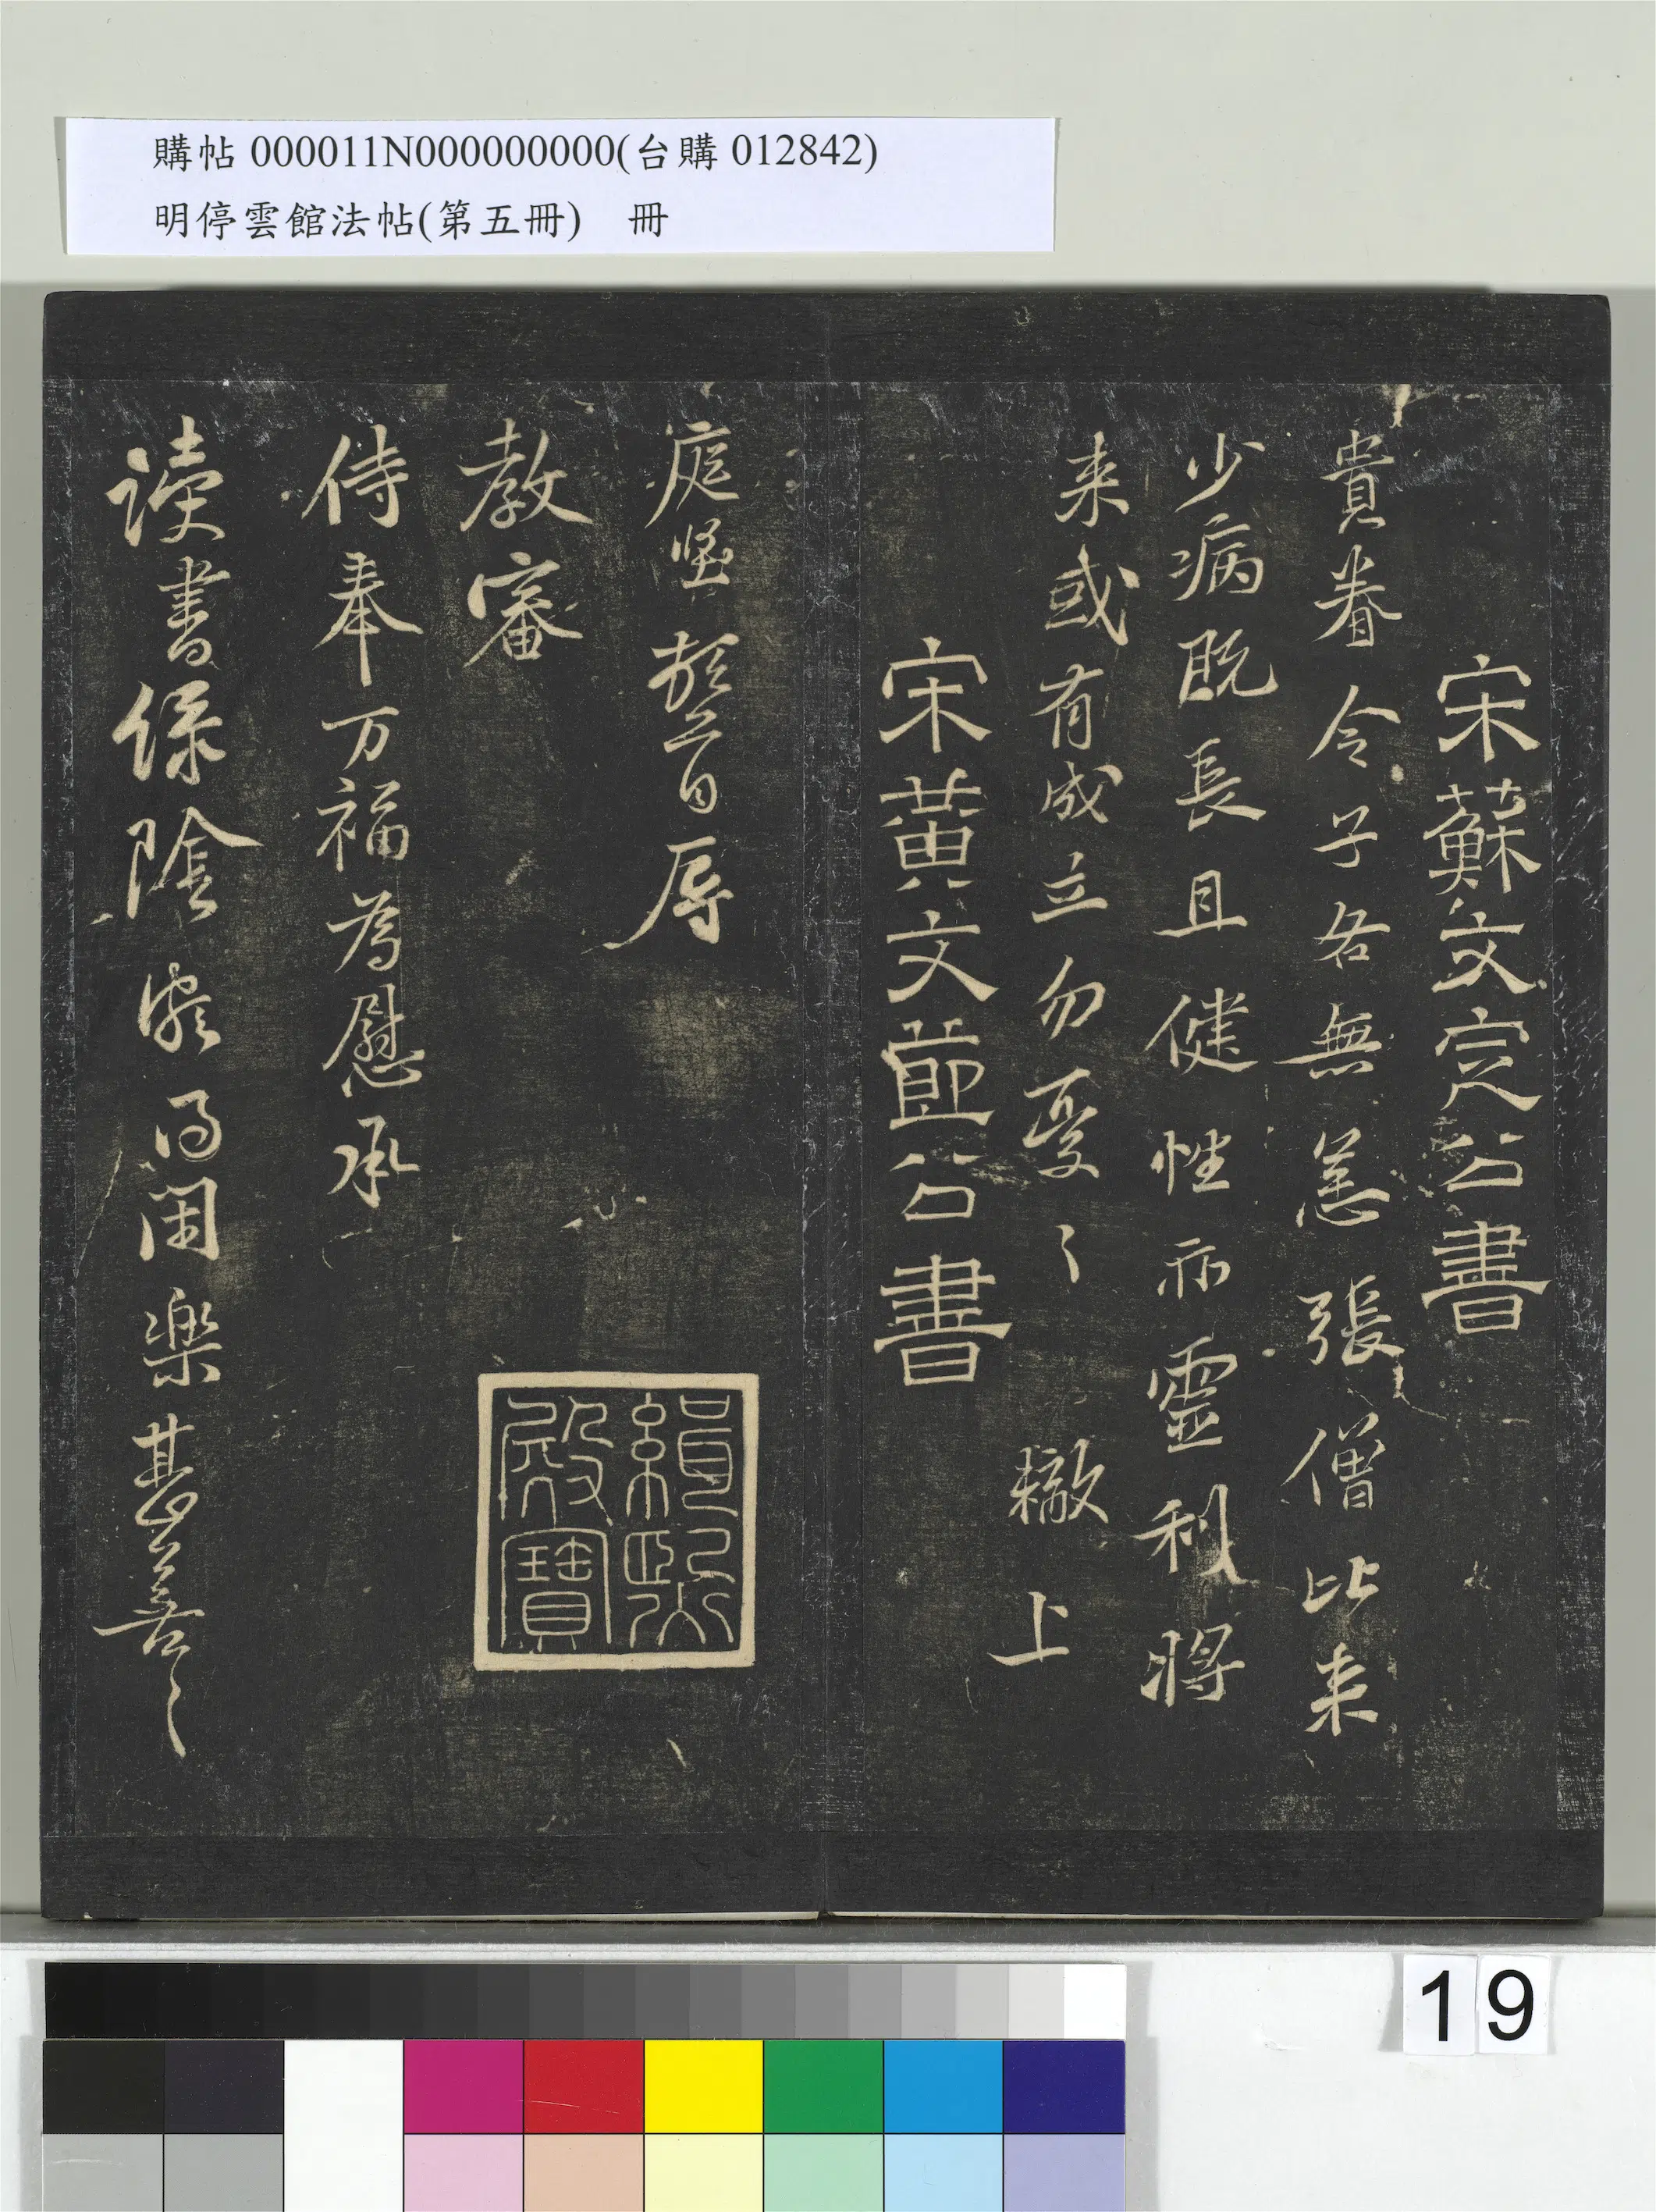 購帖 000011N000000000(台購 012842)
明停雲館法帖(第五冊) 冊
宋蘇文定公書
貴眷令子各無恙張僧比来
少病既長且健性亦靈利將
来或有成立勿憂〻 轍上
宋黃文節公書
庭堅頓首辱
教審
侍奉万福為慰承
读書綠陰頗得閑樂甚善〻
緝熙殿寶
19